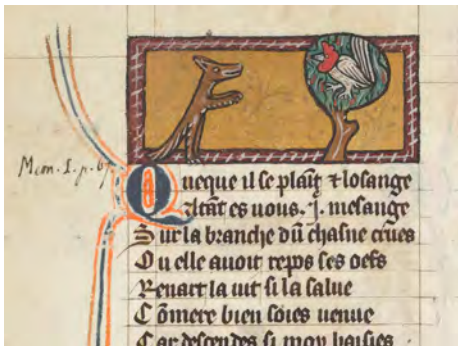 Mem. I. p. 67
Queque il se plaīt ⁊ losange
Atāt es uous .j. mesange
Sur la branche dū chasne crues
Ou elle auoit repos ses oefs
Renart la uit si la salue
Cōmere bien soies uenue
Car descendes si moy baisies